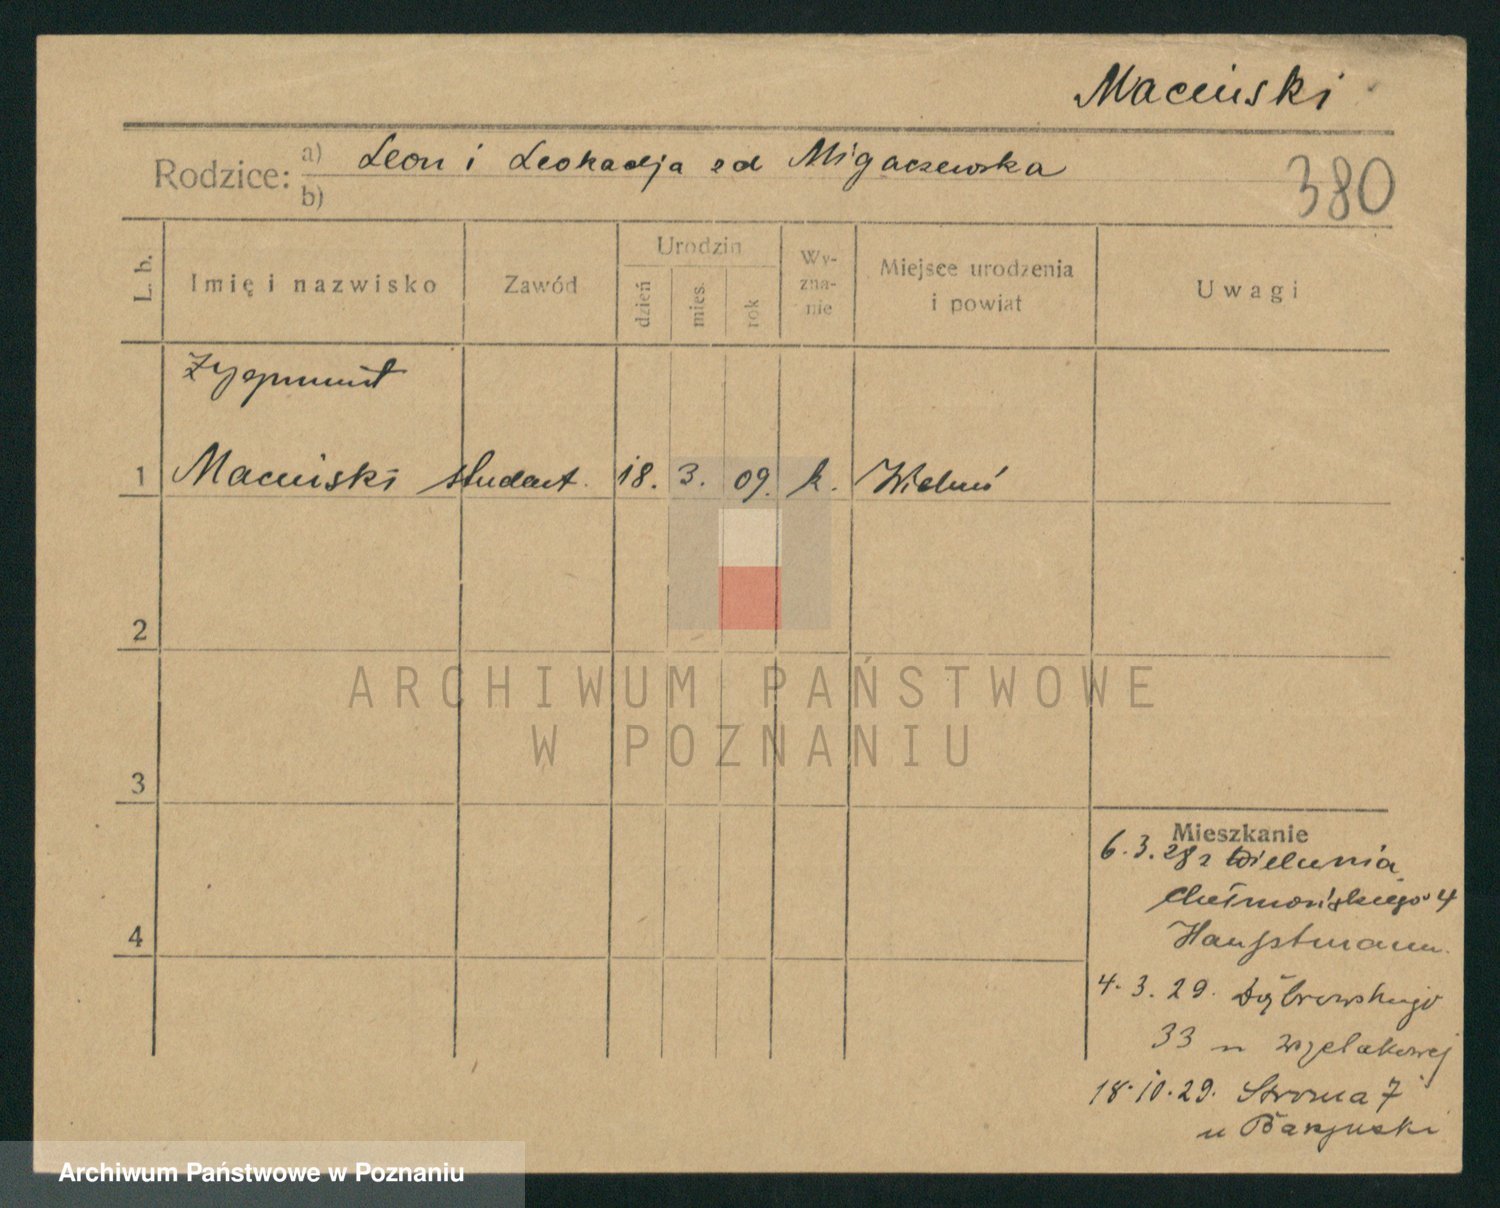 Maciński
Rodzice: a) Leon i Leokadja zd Migaczewska
b)
380
L. b.
Imię i nazwisko
Zawód
Urodzin
dzień
mies.
rok
Wy-
zna-
nie
Miejsce urodzenia
i powiat
Uwagi
Zygmunt
1 Maciński student. 18. 3. 09. k. Wieluń
2
3
4
ARCHIWUM PAŃSTWOWE
W POZNANIU
Mieszkanie
6.3.28 z Wielunia
Chełmońskiego 4
Hauptmann.
4.3.29. Dąbrowskiego
33 u
18.10.29. Stroma 7
u
Archiwum Państwowe w Poznaniu